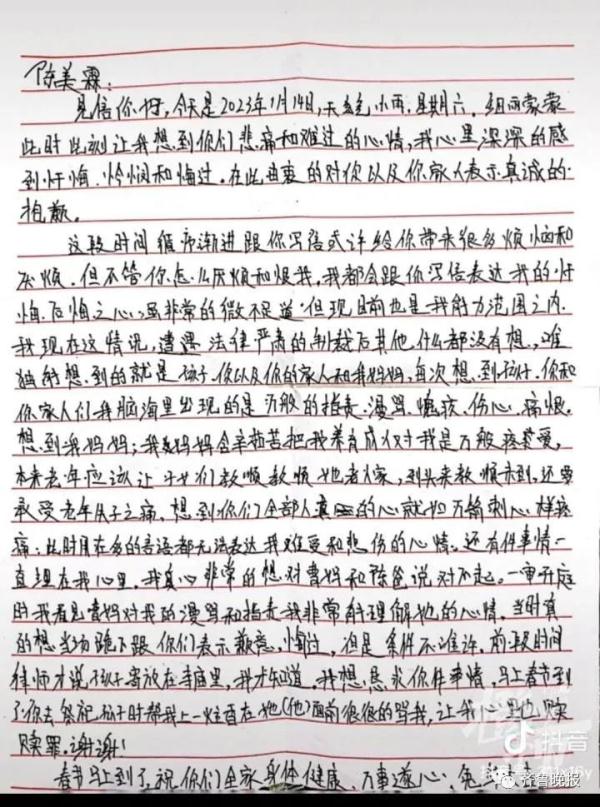 陈美霖：
见信你好，今天是2023年1月14日，天气小雨，星期六，细雨蒙蒙
此时此刻让我想到你们悲痛和难过的心情，我心里深深的感
到忏悔、怜悯和悔过。在此由衷的对你以及你家人表示真诚的
抱歉。
这段时间循序渐进跟你写信或许给你带来很多烦恼和
厌烦，但不管你怎么厌烦和恨我，我都会跟你写信表达我的忏
悔、后悔之心，虽非常的微不足道，但现目前也是我能力范围之内，
我现在这情况，遭遇法律严肃的判裁后其他什么都没有想，唯
独能想到的就是孩子、你以及你的家人和我妈妈，每次想到孩子、你和
你家人们我脑海里出现的是万般的指责、漫骂、伤心、痛恨。
想到我妈妈；我妈妈含辛茹苦把我养育成人对我是万般疼爱，
本来老年应该让子女们孝顺孝顺她老人家，到头来孝顺未到，还要
承受老年失子之痛，想到你们全部人真的心就如万箭刺心样疼
痛；此时用在多的言语都无法表达我难受和悲伤的心情。还有件事情一
直埋在我心里，我真心非常的想对曹妈和陈爸说对不起。一审开庭
时我看见曹妈对我的漫骂和指责我非常能理解她的心情，当时真
的想当场跪下跟你们表示歉意、悔过，但是条件不准许，前段时间
律师才说孩子寄放在寺庙里，我才知道。我想恳求你件事情，马上春节到
了你去祭祀孩子时帮我上一炷香在她(他)面前很很的骂我，让我心里也赎
赎罪。谢谢！
春节马上到了，祝你们全家身体健康、万事遂心，兔年
抖音
齐鲁晚报